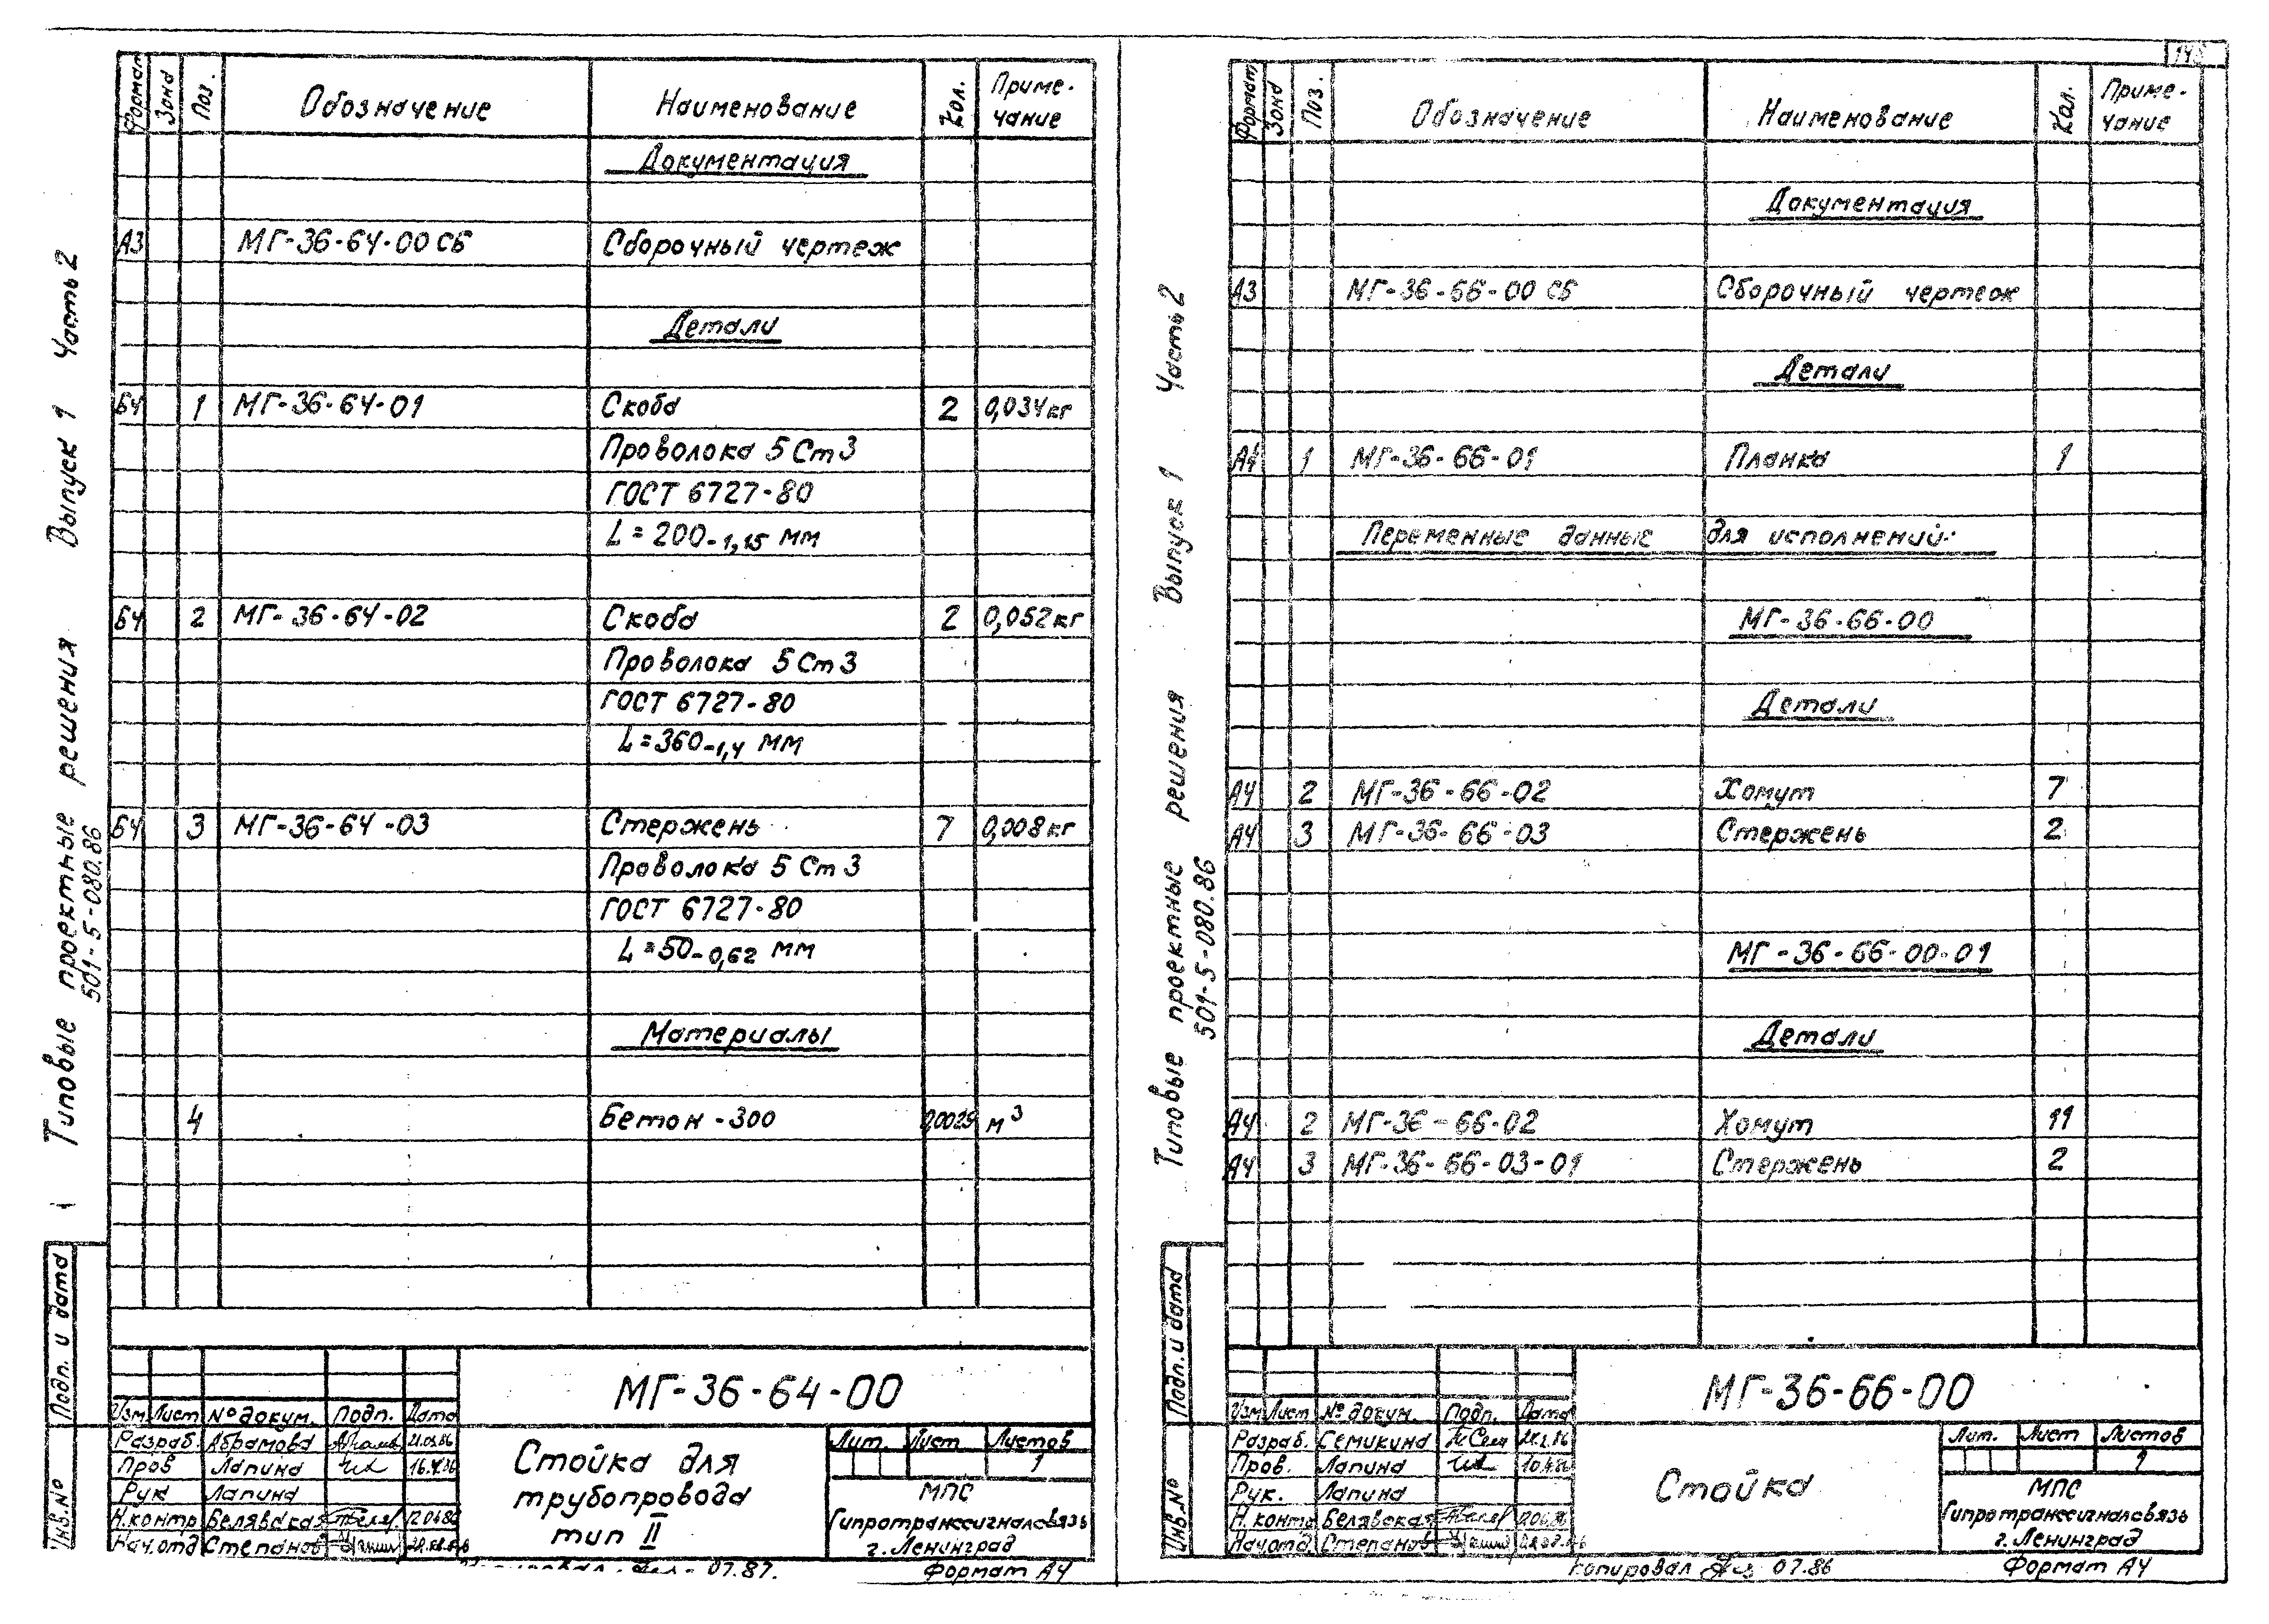 Типовые проектные решения Выпуск 1 Часть 2
501-5-080.86
Подп. и дата
Инв.№
Формат Зона Поз. Обозначение Наименование Кол. Приме-
чание
Документация
А3 МГ-36-64-00 СБ Сборочный чертеж
Детали
БЧ 1 МГ-36-64-01 Скоба 2 0,034кг
Проволока 5 Ст 3
ГОСТ 6727-80
L = 200-1,15 мм
БЧ 2 МГ-36-64-02 Скоба 2 0,052кг
Проволока 5 Ст 3
ГОСТ 6727-80
L=360-1,4 мм
БЧ 3 МГ-36-64-03 Стержень 7 0,008кг
Проволока 5 Ст 3
ГОСТ 6727-80
L=50-0,62 мм
Материалы
4 Бетон-300 м³
МГ-36-64-00
Изм Лист № докум. Подп. Дата
Разраб. Абрамова
Пров Лапина
Рук Лапина
Н.контр Белявская
Нач.отд Степанов
Стойка для
трубопровода
тип II
Лит. Лист Листов
1
МПС
Гипротранссигналсвязь
г. Ленинград
07.87.
Формат А4
Типовые проектные решения Выпуск 1 Часть 2
501-5-080.86
Подп. и дата
Инв.№
Формат Зона Поз. Обозначение Наименование Кол. Приме-
чание
Документация
А3 МГ-36-66-00 СБ Сборочный чертеж
Детали
А4 1 МГ-36-66-01 Планка 1
Переменные данные для исполнений:
МГ-36-66-00
Детали
А4 2 МГ-36-66-02 Хомут 7
А4 3 МГ-36-66-03 Стержень 2
МГ-36-66-00-01
Детали
А4 2 МГ-36-66-02 Хомут 11
А4 3 МГ-36-66-03-01 Стержень 2
МГ-36-66-00
Изм Лист № докум. Подп. Дата
Разраб. Семикина
Пров. Лапина
Рук. Лапина
Н.контр Белявская
Нач.отд. Степанов
Стойка
Лит. Лист Листов
1
МПС
Гипротранссигналсвязь
г. Ленинград
Копировал 07.86
Формат А4